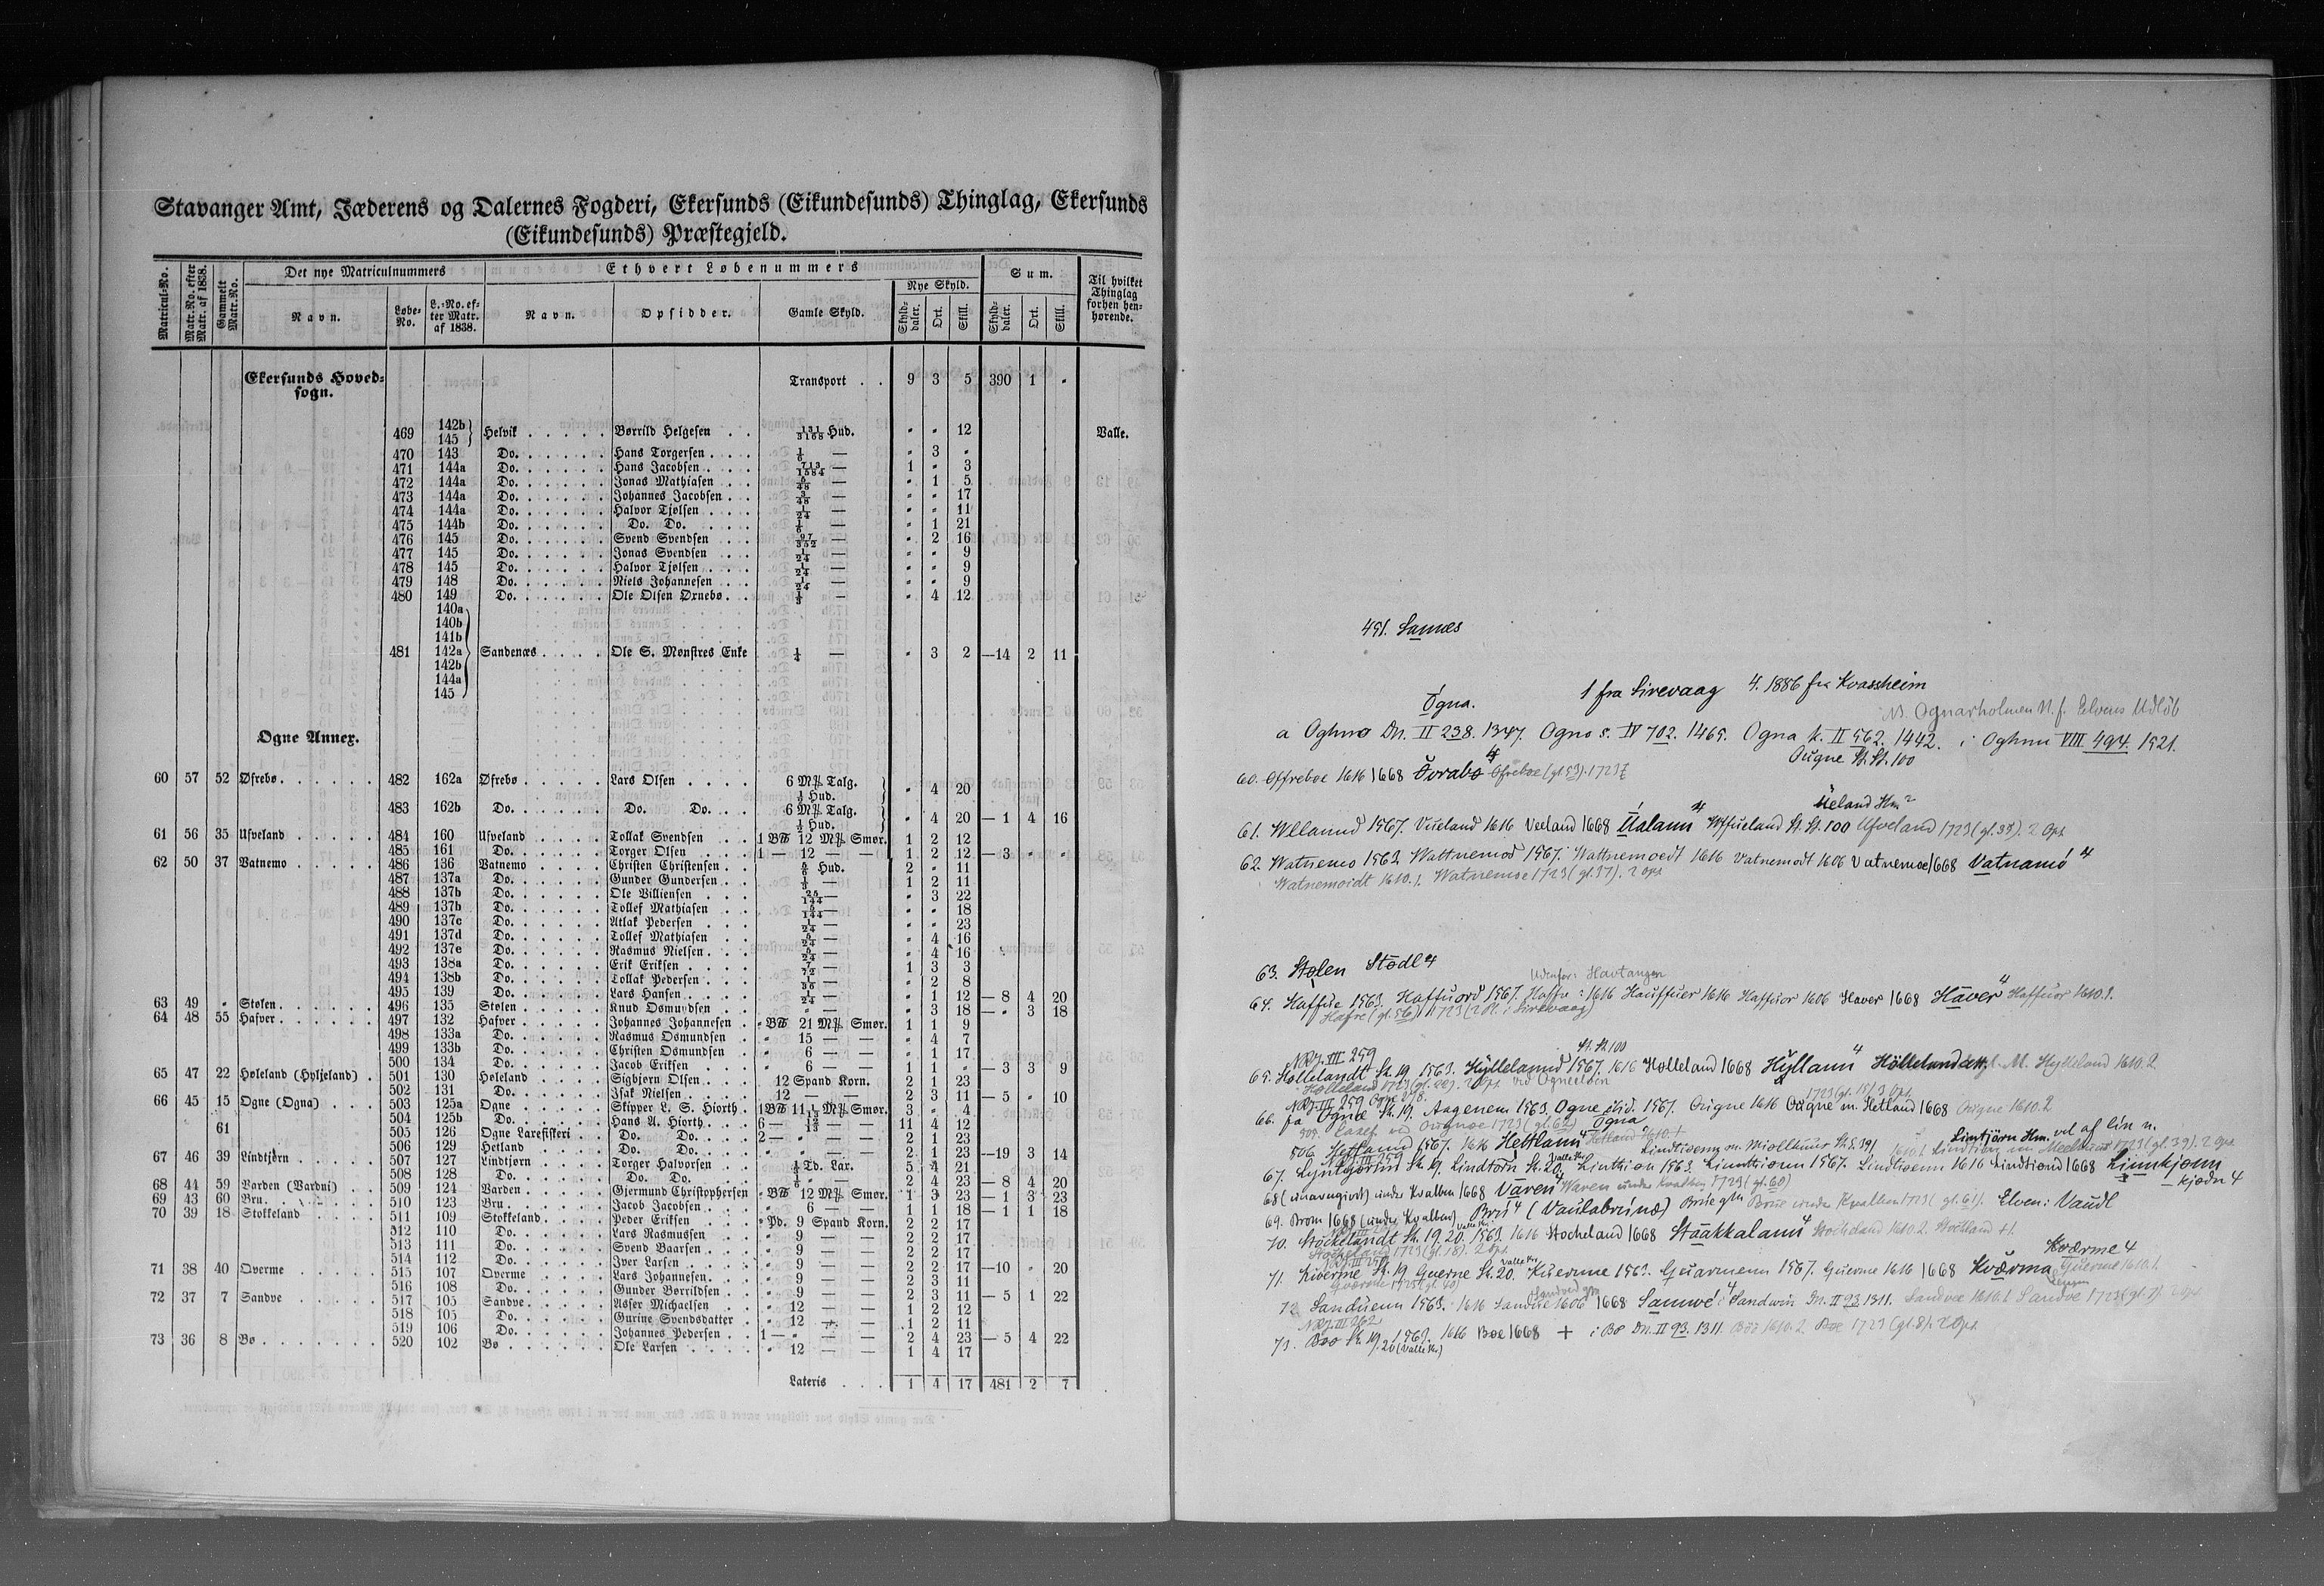 Stavanger Amt, Jæderens og Dalernes Fogderi, Ekersunds (Eikundesunds) Thinglag, Ekersunds
(Eikundesunds) Præstegjeld.
Matricul-No. Matr.No. efter Matr. af 1838. Gammelt Matr.No. Det nye Matriculnummers Ethvert Løbenummers Sum. Til hvilket Thinglag forhen henhørende.
Navn. Løbe-No. L.-No. efter Matr. af 1838. Navn. Opsidder. Gamle Skyld. Nye Skyld. Skylddaler. Ort. Skill. Skylddaler. Ort. Skill.
Ekersunds Hovedsogn. Transport . . 9 3 5 390 1 "
469 142b 145 Helvik . . . . . Børrild Helgesen . . 131/3168 Hud. " " 12 Valle.
470 143 Do. . . . . . Hans Torgersen . . . 1/6 — " 3 "
471 144a Do. . . . . . Hans Jacobsen . . . . 713/1584 — 1 " 3
472 144a Do. . . . . . Jonas Mathiasen . . . 5/48 — " 1 5
473 144a Do. . . . . . Johannes Jacobsen . . 3/48 — " " 17
474 144a Do. . . . . . Halvor Tjølsen . . . . 1/24 — " " 11
475 144b Do. . . . . . Do. Do. . . . 1/6 — " 1 21
476 145 Do. . . . . . Svend Svendsen . . . 97/352 — " 2 16
477 145 Do. . . . . . Jonas Svendsen . . . 1/24 — " " 9
478 145 Do. . . . . . Halvor Tjølsen . . . . 1/24 — " " 9
479 148 Do. . . . . . Niels Johannesen . . . 1/24 — " " 9
480 149 Do. . . . . . Ole Olsen Ørnebø . . 1/3 — " 4 12
140a
140b
141b
481 142a Sandenæs . . . . Ole S. Mønstres Enke 1/4 — " 3 2 —14 2 11
142b
144a
145
Ogne Annex.
60 57 52 Øfrebø . . . . . . 482 162a Øfrebø . . . . . Lars Olsen . . . . 6 M℔ Talg.
1/2 Hud. " 4 20
483 162b Do. . . . . . Do. Do. . . 6 M℔ Talg.
1/2 Hud. " 4 20 — 1 4 16
61 56 35 Ufveland . . . . . 484 160 Ufveland . . . . . Tollak Svendsen . . 1 B℔ 12 M℔ Smør. 1 2 12
485 161 Do. . . . . . Torger Olsen . . . 1 — 12 — — 1 2 12 — 3 " "
62 50 37 Vatnemo . . . . . 486 136 Vatnemo . . . . . Christen Christensen . . 5/6 Hud. 2 " 11
487 137a Do. . . . . . Gunder Gundersen . . 1/3 — 1 2 11
488 137b Do. . . . . . Ole Villiensen . . . 25/144 — " 3 22
489 137b Do. . . . . . Tollef Mathiasen . . . 5/144 — " " 18
490 137c Do. . . . . . Atlak Pedersen . . . 1/24 — " " 23
491 137d Do. . . . . . Tollef Mathiasen . . 5/24 — " 4 16
492 137e Do. . . . . . Rasmus Nielsen . . . 5/24 — " 4 16
493 138a Do. . . . . . Erik Eriksen . . . . 7/72 — 1 3 3
494 138b Do. . . . . . Tollak Pedersen . . . 1/36 — " 2 8
495 139 Do. . . . . . Lars Hansen . . . . 1/24 — " 1 12 — 8 4 20
63 49 " Stølen . . . . . . 496 135 Stølen . . . . . Knud Osmundsen . . " — " 3 18 — " 3 18
64 48 55 Hafver . . . . . . 497 132 Hafver . . . . . Johannes Johannesen . " B℔ 21 M℔ Smør. 1 1 9
498 133a Do. . . . . . Rasmus Osmundsen . . " 15 — — " 4 7
499 133b Do. . . . . . Christen Osmundsen . " 6 — — " 1 17
500 134 Do. . . . . . Jacob Eriksen . . . " 6 — — 1 1 " — 3 3 9
65 47 22 Høleland (Hyljeland) . 501 130 Høleland . . . . Sigbjørn Olsen . . . 12 Spand Korn. 2 1 23
502 131 Do. . . . . . Isak Nielsen . . . . 12 — — 2 3 11 — 5 " 10
66 45 15 Ogne (Ogna) . . . 503 125a Ogne . . . . . . Skipper L. S. Hiorth . 1 B℔ 11 1/13 M℔ Smør. 3 " 4
61 504 125b Do. . . . . . Hans A. Hiorth . . . 6 — 12/13 — — 11 4 12
505 126 Ogne Laxefiskeri . . Do. Do. . . . 2 — " — — 2 1 23
506 129 Hetland . . . . . Do. Do. . . . " — — 2 1 23 —19 3 14
67 46 39 Lindtjørn . . . . . 507 127 Lindtjørn . . . . Torger Halvorsen . . 1/2 Td. Lax. 5 4 21
508 128 Do. . . . . . Do. Do. . . . 1/6 " — 2 4 23 — 8 4 20
68 44 59 Varden (Vardni) . . 509 124 Varden . . . . . Gjermund Christophersen " B℔ 12 M℔ Smør. 1 3 23 — 1 3 23
69 43 60 Bru . . . . . . . 510 123 Bru . . . . . . Jacob Jacobsen . . . " 6 — — 1 1 18 — 1 1 18
70 39 18 Stokkeland . . . . 511 109 Stokkeland . . . . Peder Eriksen . . . " Pd. 9 Spand Korn. 2 2 17
512 110 Do. . . . . . Lars Rasmussen . . " 9 — — 2 2 17
513 111 Do. . . . . . Svend Baarsen . . . " 9 — — 2 2 17
514 112 Do. . . . . . Iver Larsen . . . . " 9 — — 2 2 17 —10 " 20
71 38 40 Qverme . . . . . 515 107 Qverme . . . . . Lars Johannesen . . . " 9 — — 2 3 11
516 108 Do. . . . . . Gunder Børrildsen . . " 9 — — 2 3 11 — 5 1 22
72 37 7 Sandve . . . . . 517 105 Sandve . . . . . Asser Michaelsen . . " 12 — — 1 2 12
518 105 Do. . . . . . Gurine Svendsdatter . . " 12 — — 1 2 11
519 106 Do. . . . . . Johannes Pedersen . . 1 — " — — 2 4 23 — 5 4 22
73 36 8 Bø . . . . . . . 520 102 Bø . . . . . . Ole Larsen . . . . " 12 — — 1 4 17
Lateris . . . 1 4 17 481 2 7
491. Samnes
Ogna. 1 fra Sirevaag 4. 1886 fra Kvassheim
NB. Ognarholmen N. f. Elvens Udløb
a Oghno Dn. II 238. 1347. Ogno s. IV 702. 1465. Ogna k. II 562. 1442. i Oghnu VIII 494. 1521.
Ougne St. St. 100
60. Offreboe 1616 1668 Øfreboe (gl. 53). 1723
Ueland Hm
61. 1567. Vueland 1616 Veeland 1668 Ualann 4 St. St. 100 Ufveland 1723 (gl. 35). 2 Ops.
62. Watnemo 1563. Wattnemod 1567. Wattnemoedt 1616 Vatnemodt 1606 Vatnemoe 1668 Vatnamo 4
Watnemoidt 1610.1. Watnemoe 1723 (gl. 37). 2 ops.
63. Stølen Stødl 4
Udenfor: Havtangen
64. Haffue 1563. Haffuord 1567. 1616 Hauffuer 1616 Haffuor 1606 Haver 1668 Haver 4 Haffuor 1610.1.
1723 (2 Pl. i Sirevaag)
NRJ. III 259 St. St. 100
65. Høllelandt Sk. 19. 1563. Hyllelannd 1567. 1616 Holleland 1668 Hyllann 4 Hylleland 1610.2.
Holleland 1723 (gl. 22). 2 Ops. ved Ogneelven
NRJ. III 259 1723 (gl. 15) 3 Ops.
66. Ogne Sk. 19. Aagenem 1563. Ogne ibid. 1567. Ougne 1616 Ougne m. Hetland 1668 Ougne 1610.2.
505. Laxef. ved Ougnoe 1723 (gl. 61) Ogna
506 Hettland 1567. 1616 Hettlann 4 Lintjørn Hm. vel af lin n.
67. Lyntiørnn Sk. 19. Lindtorn Sk. 20. Linthion 1563. Linnthionn 1567. Lindtioenn 1616 Lindtiond 1668 Linnkjønn
kjødn 4
68 (uindvungivet) under Kvalben 1668 Varen 4 Waren under Kvalben 1723 (gl. 60)
69. Broen 1668 (under Kvalben) Bru 4 (Vaulabruna) Brue under Kvalben 1723 (gl. 61). Elven: Vaudl
70. Stockelandt Sk. 19. 20. 1563. 1616 Stocheland 1668 Staakkalann 4 Stocheland 1610.2.
Stocheland 1723 (gl. 18). 2 Ops.
Kværme 4
71. Kwerme Sk. 19 Guerne Sk. 20. Kuerme 1563. Guarmenn 1567. Guerme 1616 1668 Kværma Guerme 1610.1.
72. Sanduenn 1563. 1616 Sandue 1606 1668 Samvé 4 i Sandwin Dn. II 93. 1311. Sandue 1610.1 Sandve 1723 (gl. 7). 2 ops.
NRJ. III 262
73. Boo Sk. 19. 20 (Valle Kr.) 1563. 1616 Boe 1668 + i Bø Dn. II 93. 1311. Boe 1610.2. Boe 1723 (gl. 8). 2 Ops.